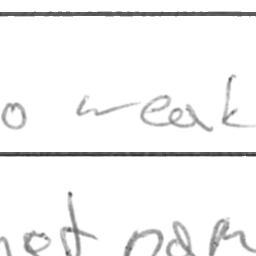 o weak
not nam